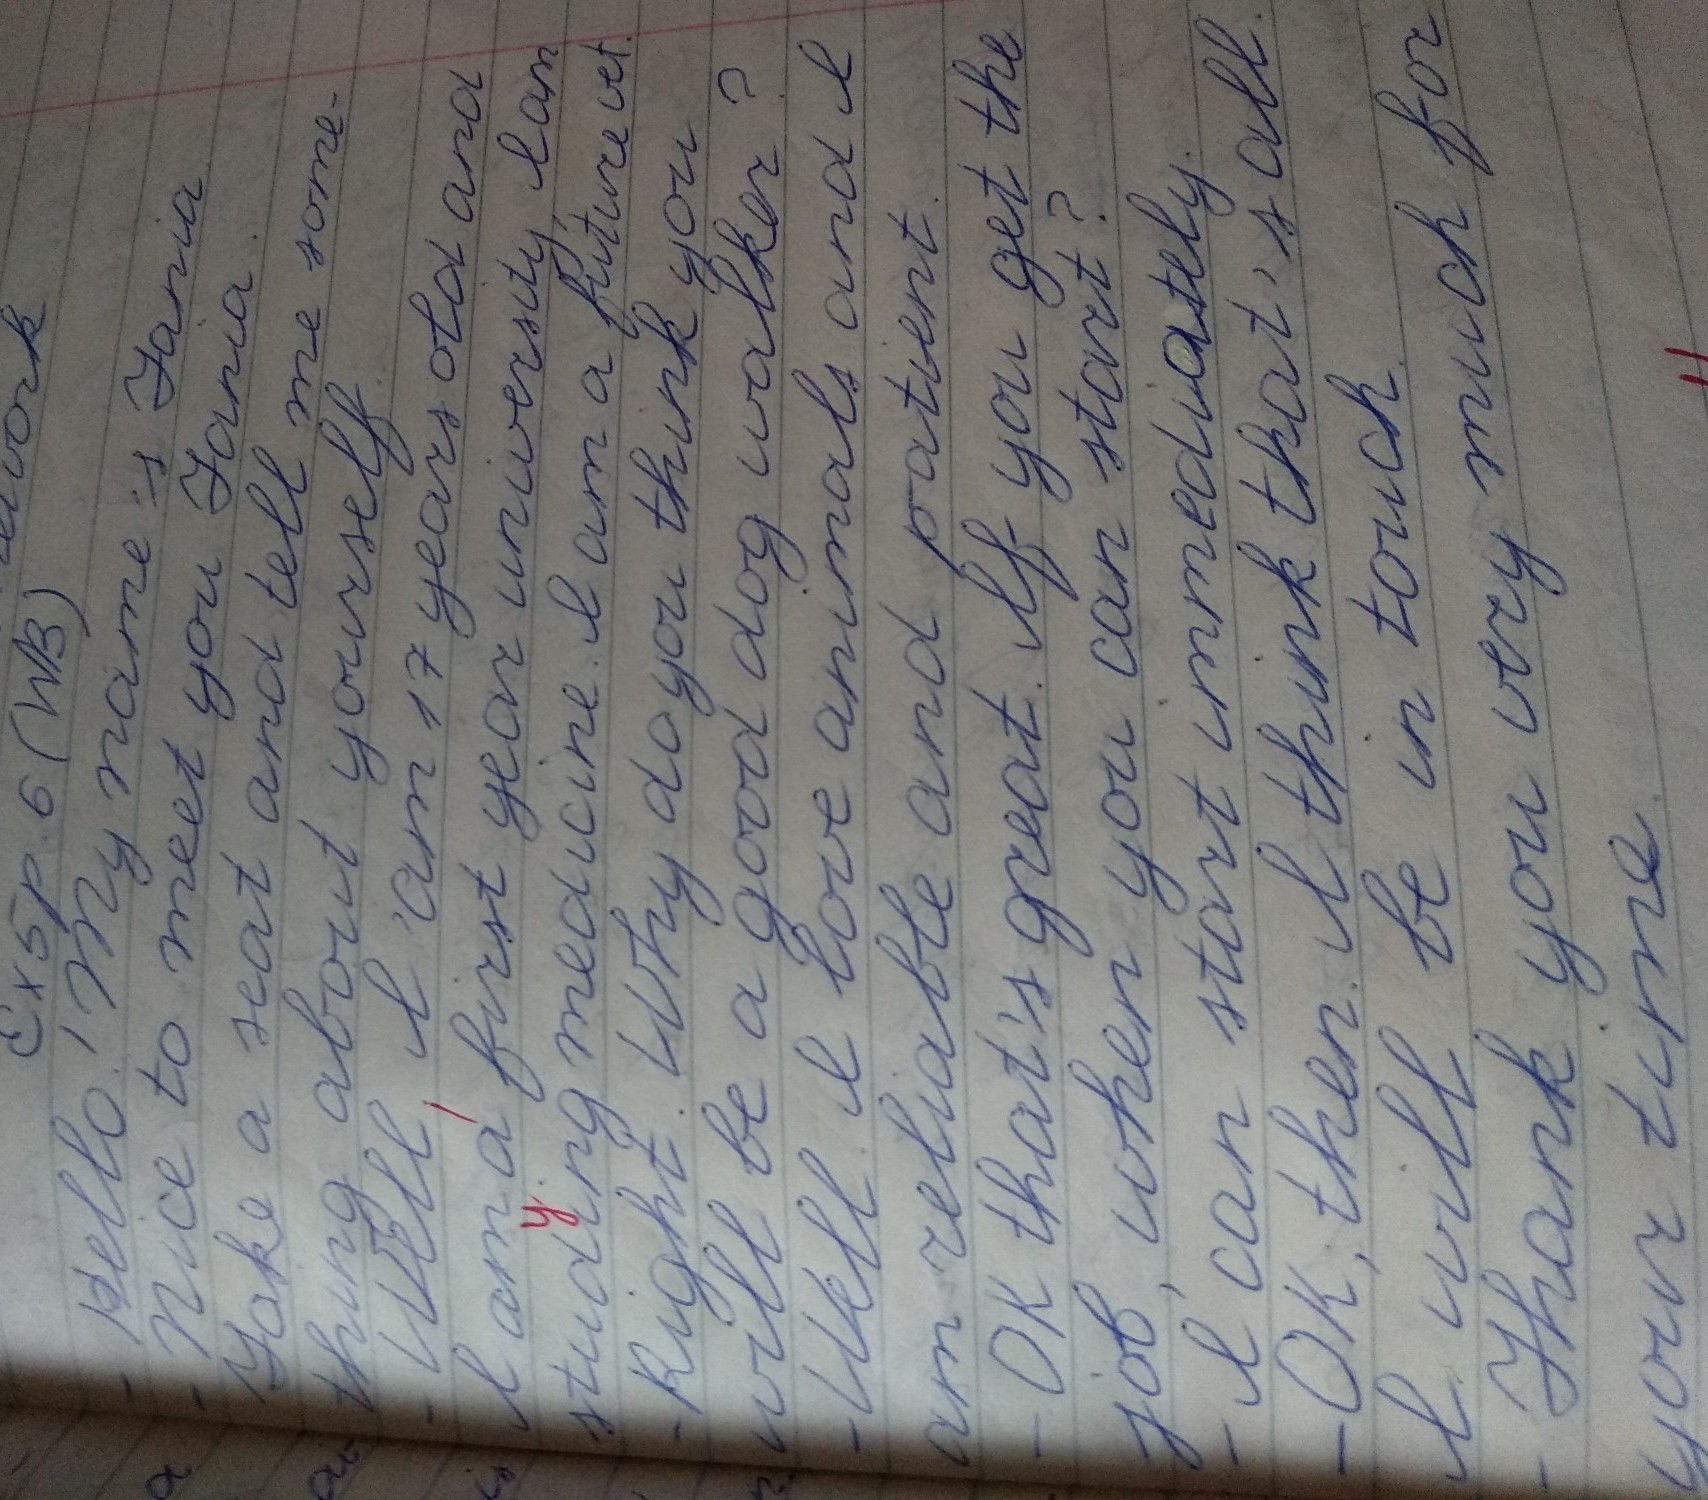 Ex 5 p. 6 (WB)
- Hello! My name is Tania
- Nice to meet you Tania.
Take a seat and tell me some-
thing about yourself.
- Well I'am 17 years old and
I am a first year university, I am
studying medicine. I am a future vet.
- Right. Why do you think you
will be a good dog walker?
- Well I love animals and I
am reliable and patient.
- OK that's great. If you get the
job, when you can start?
- I can start immediately.
- OK, then. I think that's all.
I will be in touch.
- Thank you very much for
your time.